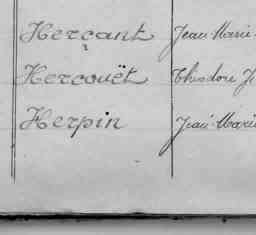 Herçant Jean Marie
Hercouët Théodore J
Herpin Jean Marie